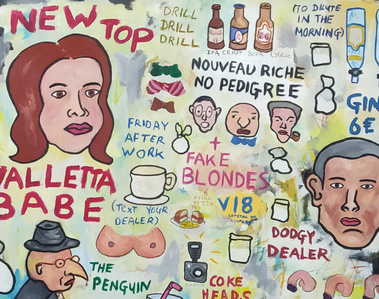 NEW TOP
DRILL
DRILL
DRILL
(TO DILUTE
IN THE
MORNING)
NOUVEAU RICHE
NO PEDIGREE
GIN
6€
FRIDAY
AFTER
WORK
+
FAKE
BLONDES
VALLETTA
BABE
(TEXT YOUR
DEALER)
V18
DODGY
DEALER
THE
PENGUIN
COKE
HEADS